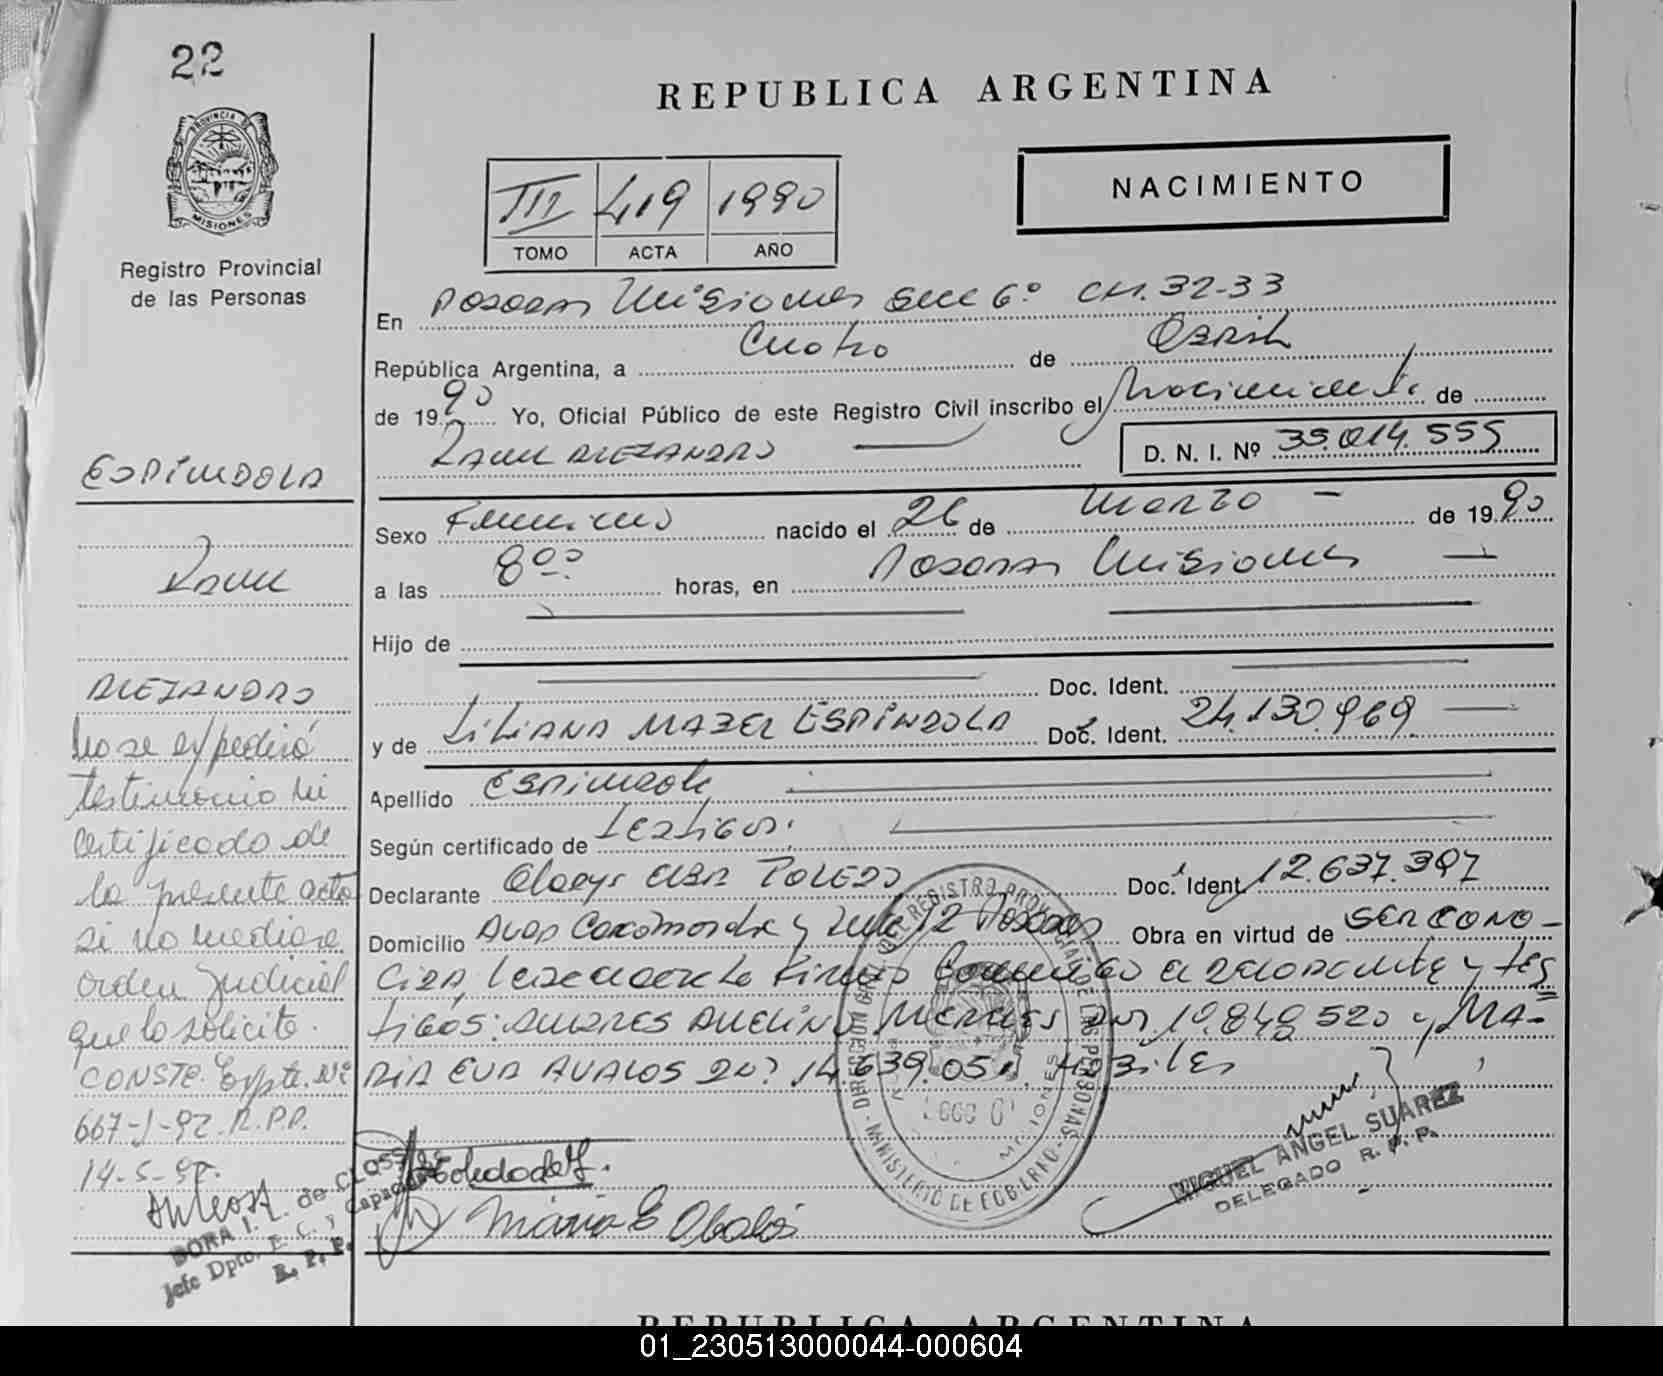 22
REPUBLICA ARGENTINA
PROVINCIA DE
MISIONES
Registro Provincial
de las Personas
III 419 1990
TOMO ACTA AÑO
NACIMIENTO
En Posadas Misiones Secc 6º CH. 32-33
República Argentina, a Cuatro de Abril
de 1990 Yo, Oficial Público de este Registro Civil inscribo el Nacimiento de
ALEJANDRO
D. N. I. Nº 35.014.555
ESPINDOLA
Sexo Femenino nacido el 26 de Marzo de 1990
a las 8 horas, en Posadas Misiones
Hijo de
Doc. Ident.
y de LILIANA MABEL ESPINDOLA Doc. Ident. 24.130.969
Apellido Espindola
Según certificado de Testigos.
Declarante Gladys ELBA TOLEDO Doc. Ident 12.637.397
Domicilio Avda y 12 Posadas Obra en virtud de SER CONO-
CIDA, Firman Conmigo el declarante y TES
TIGOS: y MA-
RIA EVA AVALOS 14.639.05 HABILES
ALEJANDRO
No se expedirá
testimonio ni
certificado de
la presente acta
si no mediare
orden judicial
que lo solicite.
CONSTE. Expte. Nº
667-J-92-R.P.P.
14-5-92.
de CLOSS
Jefe Dpto. E. C. y Capac
R. P. P.
Toledo de
Maria E Abalos
DIRECCION GRAL DEL REGISTRO PROVINCIAL DE LAS PERSONAS
MINISTERIO DE GOBIERNO
MISIONES
MIGUEL ANGEL SUAREZ
DELEGADO R. P. P.
REPUBLICA ARGENTINA
01_230513000044-000604